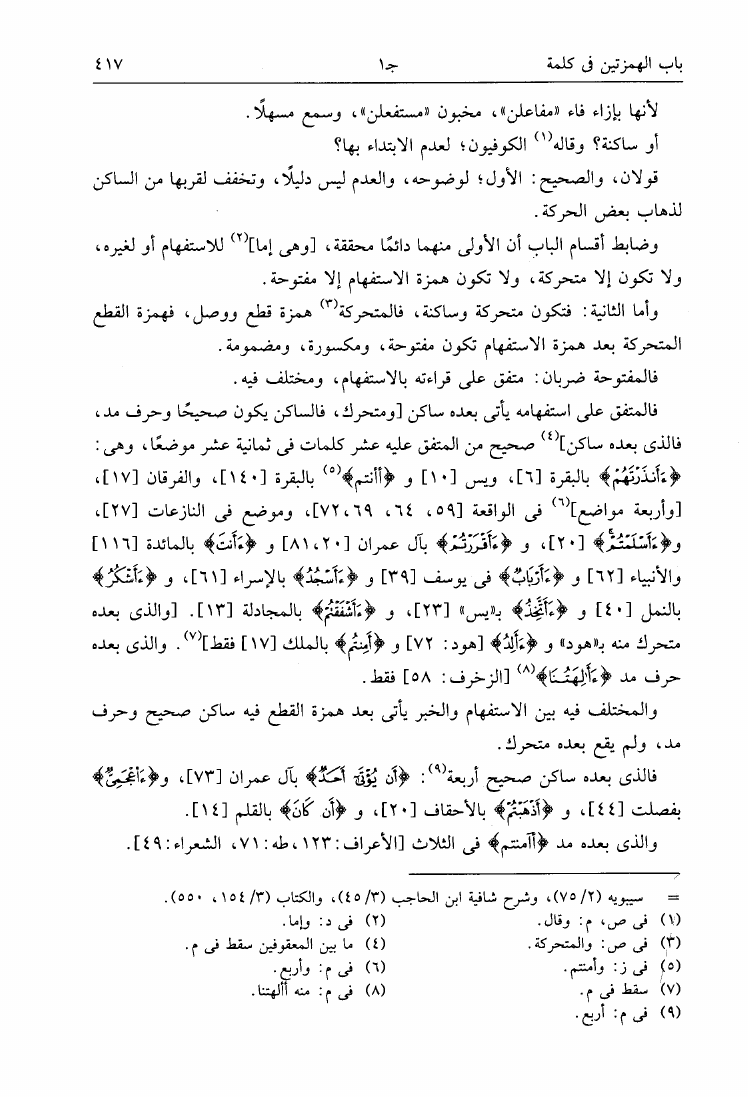 باب الهمزتين فى كلمة جـ١ ٤١٧
لأنها بإزاء فاء «مفاعلن»، مخبون «مستفعلن»، وسمع مسهلًا.
أو ساكنة؟ وقاله(١) الكوفيون؛ لعدم الابتداء بها؟
قولان، والصحيح: الأول؛ لوضوحه، والعدم ليس دليلًا، وتخفف لقربها من الساكن
لذهاب بعض الحركة.
وضابط أقسام الباب أن الأولى منهما دائمًا محققة، [وهى إما](٢) للاستفهام أو لغيره،
ولا تكون إلا متحركة، ولا تكون همزة الاستفهام إلا مفتوحة.
وأما الثانية: فتكون متحركة وساكنة، فالمتحركة(٣) همزة قطع ووصل، فهمزة القطع
المتحركة بعد همزة الاستفهام تكون مفتوحة، ومكسورة، ومضمومة.
فالمفتوحة ضربان: متفق على قراءته بالاستفهام، ومختلف فيه.
فالمتفق على استفهامه يأتى بعده ساكن [ومتحرك، فالساكن يكون صحيحًا وحرف مد،
فالذى بعده ساكن](٤) صحيح من المتفق عليه عشر كلمات فى ثمانية عشر موضعًا، وهى:
﴿ءَأَنذَرْتَهُمْ﴾ بالبقرة [٦]، ويس [١٠] و ﴿أأنتم﴾(٥) بالبقرة [١٤٠]، والفرقان [١٧]،
[وأربعة مواضع](٦) فى الواقعة [٥٩، ٦٤، ٦٩، ٧٢]، وموضع فى النازعات [٢٧]،
و﴿ءَأَسْلَمْتُمْ﴾ [٢٠]، و ﴿ءَأَقْرَرْتُمْ﴾ بآل عمران [٢٠، ٨١] و ﴿ءَأَنتَ﴾ بالمائدة [١١٦]
والأنبياء [٦٢] و ﴿ءَأَرْبَابٌ﴾ فى يوسف [٣٩] و ﴿ءَأَسْجُدُ﴾ بالإسراء [٦١]، و ﴿ءَأَشْكُرُ﴾
بالنمل [٤٠] و ﴿ءَأَتَّخِذُ﴾ بـ«يس» [٢٣]، و ﴿ءَأَشْفَقْتُمْ﴾ بالمجادلة [١٣]. [والذى بعده
متحرك منه بـ«هود» و ﴿ءَأَلِدُ﴾ [هود: ٧٢] و ﴿أَمِنتُم﴾ بالملك [١٧] فقط](٧). والذى بعده
حرف مد ﴿ءَأَالِهَتُنَا﴾(٨) [الزخرف: ٥٨] فقط.
والمختلف فيه بين الاستفهام والخبر يأتى بعد همزة القطع فيه ساكن صحيح وحرف
مد، ولم يقع بعده متحرك.
فالذى بعده ساكن صحيح أربعة(٩): ﴿أَن يُؤْتَىٰٓ أَحَدٌ﴾ بآل عمران [٧٣]، و﴿ءَأَعْجَمِىٌّ﴾
بفصلت [٤٤]، و ﴿أَذْهَبْتُمْ﴾ بالأحقاف [٢٠]، و ﴿أَن كَانَ﴾ بالقلم [١٤].
والذى بعده مد ﴿أآمنتم﴾ فى الثلاث [الأعراف: ١٢٣، طه: ٧١، الشعراء: ٤٩].
= سيبويه (٢/ ٧٥)، وشرح شافية ابن الحاجب (٣/ ٤٥)، والكتاب (٣/ ١٥٤، ٥٥٠).
(١) فى ص، م: وقال. (٢) فى د: وإما.
(٣) فى ص: والمتحركة. (٤) ما بين المعقوفين سقط فى م.
(٥) فى ز: وأمنتم. (٦) فى م: وأربع.
(٧) سقط فى م. (٨) فى م: منه أألهتنا.
(٩) فى م: أربع.